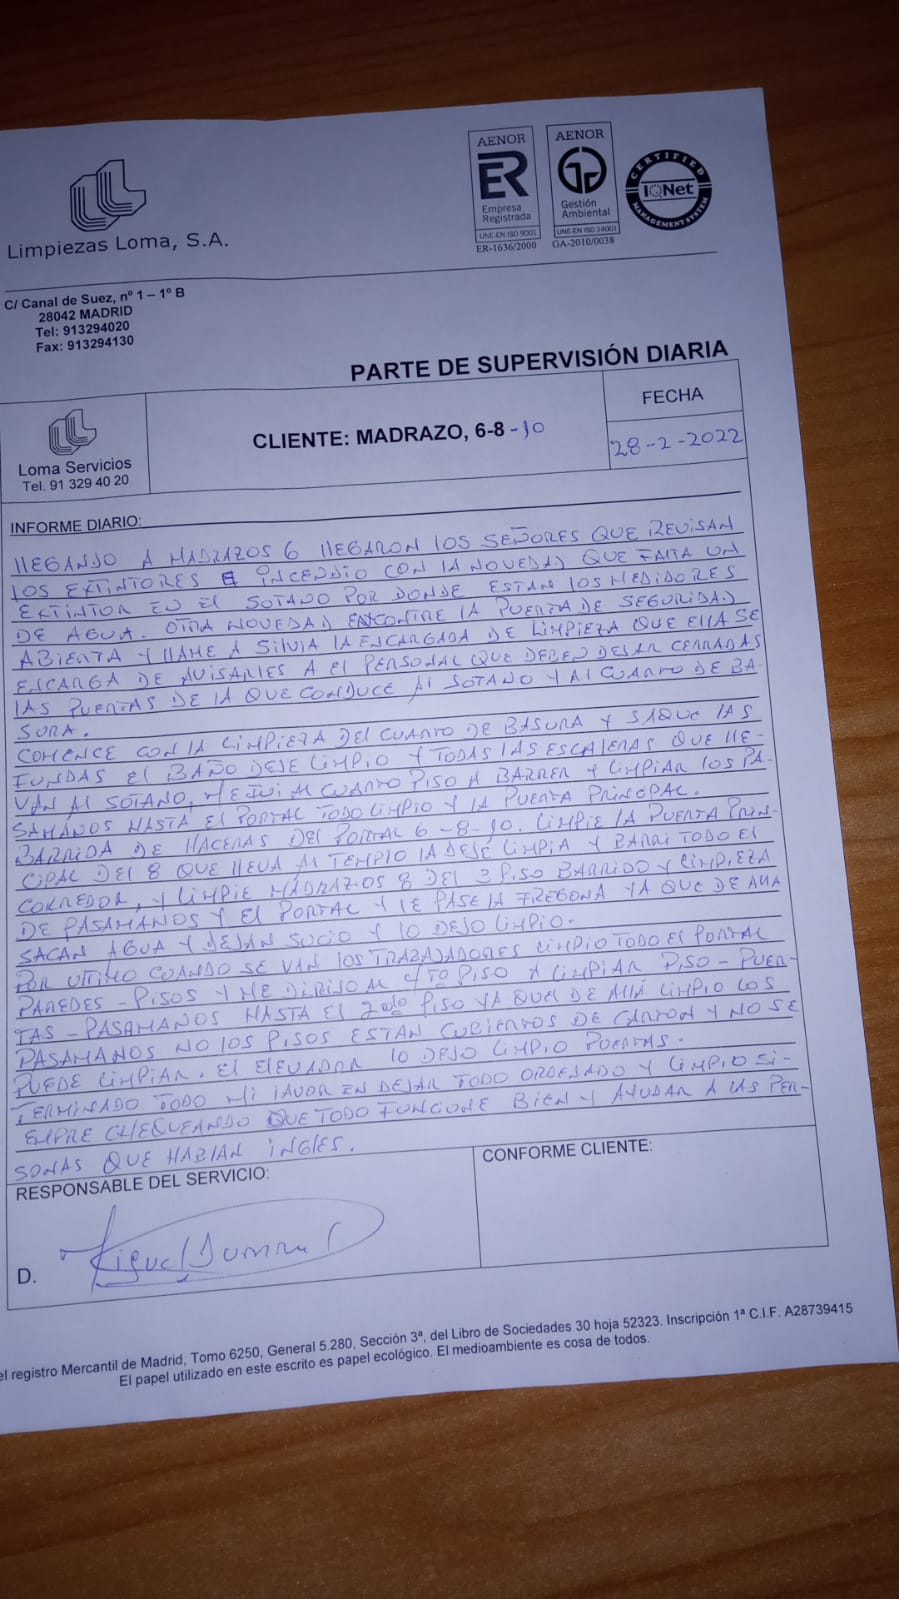 Limpiezas Loma, S.A.
AENOR
ER
Empresa
Registrada
UNE-EN ISO 9001
ER-1636/2000
AENOR
Gestión
Ambiental
UNE-EN ISO 14001
GA-2010/0038
CERTIFIED
IQNet
MANAGEMENT SYSTEM
C/ Canal de Suez, nº 1 – 1º B
28042 MADRID
Tel: 913294020
Fax: 913294130
PARTE DE SUPERVISIÓN DIARIA
Loma Servicios
Tel. 91 329 40 20
CLIENTE: MADRAZO, 6-8-10
FECHA
28-2-2022
INFORME DIARIO:
LLEGANDO A MADRAZOS 6 LLEGARON LOS SEÑORES QUE REVISAN
LOS EXTINTORES E INCENDIO CON LA NOVEDAD QUE FALTA UN
EXTINTOR EN EL SOTANO POR DONDE ESTAN LOS MEDIDORES
DE AGUA. OTRA NOVEDAD ENCONTRE LA PUERTA DE SEGURIDAD
ABIERTA Y LLAME A SILVIA LA ENCARGADA DE LIMPIEZA QUE ELLA SE
ENCARGA DE AVISARLES A EL PERSONAL QUE DEBEN DEJAR CERRADAS
LAS PUERTAS DE LA QUE CONDUCE AL SOTANO Y AL CUARTO DE BA-
SURA.
COMENCE CON LA LIMPIEZA DEL CUARTO DE BASURA Y SAQUE LAS
FUNDAS EL BAÑO DEJE LIMPIO Y TODAS LAS ESCALERAS QUE LLE-
VAN AL SOTANO, ME FUI AL CUARTO PISO A BARRER Y LIMPIAR LOS PA-
SAMANOS HASTA EL PORTAL TODO LIMPIO Y LA PUERTA PRINCIPAL.
BARRIDA DE HACERAS DEL PORTAL 6-8-10. LIMPIE LA PUERTA PRIN-
CIPAL DEL 8 QUE LLEVA AL TEMPLO LA DEJE LIMPIA Y BARRI TODO EL
CORREDOR, Y LIMPIE MADRAZOS 8 DEL 3 PISO BARRIDO Y LIMPIEZA
DE PASAMANOS Y EL PORTAL Y LE PASE LA FREGONA YA QUE DE ALLA
SACAN AGUA Y DEJAN SUCIO Y LO DEJO LIMPIO.
POR ULTIMO CUANDO SE VAN LOS TRABAJADORES LIMPIO TODO EL PORTAL
PAREDES - PISOS Y ME DIRIJO AL 4TO PISO A LIMPIAR PISO - PUER-
TAS - PASAMANOS HASTA EL 2DO PISO YA QUE DE ALLA LIMPIO LOS
PASAMANOS NO LOS PISOS ESTAN CUBIERTOS DE CARTON Y NO SE
PUEDE LIMPIAR. EL ELEVADOR LO DEJO LIMPIO PUERTAS.
TERMINADO TODO MI LAVOR EN DEJAR TODO ORDENADO Y LIMPIO SI-
EMPRE CHEQUEANDO QUE TODO FUNCIONE BIEN Y AYUDAR A LAS PER-
SONAS QUE HABLAN INGLES.
RESPONSABLE DEL SERVICIO:
CONFORME CLIENTE:
D. Miguel
el registro Mercantil de Madrid, Tomo 6250, General 5.280, Sección 3ª, del Libro de Sociedades 30 hoja 52323. Inscripción 1ª C.I.F. A28739415
El papel utilizado en este escrito es papel ecológico. El medioambiente es cosa de todos.